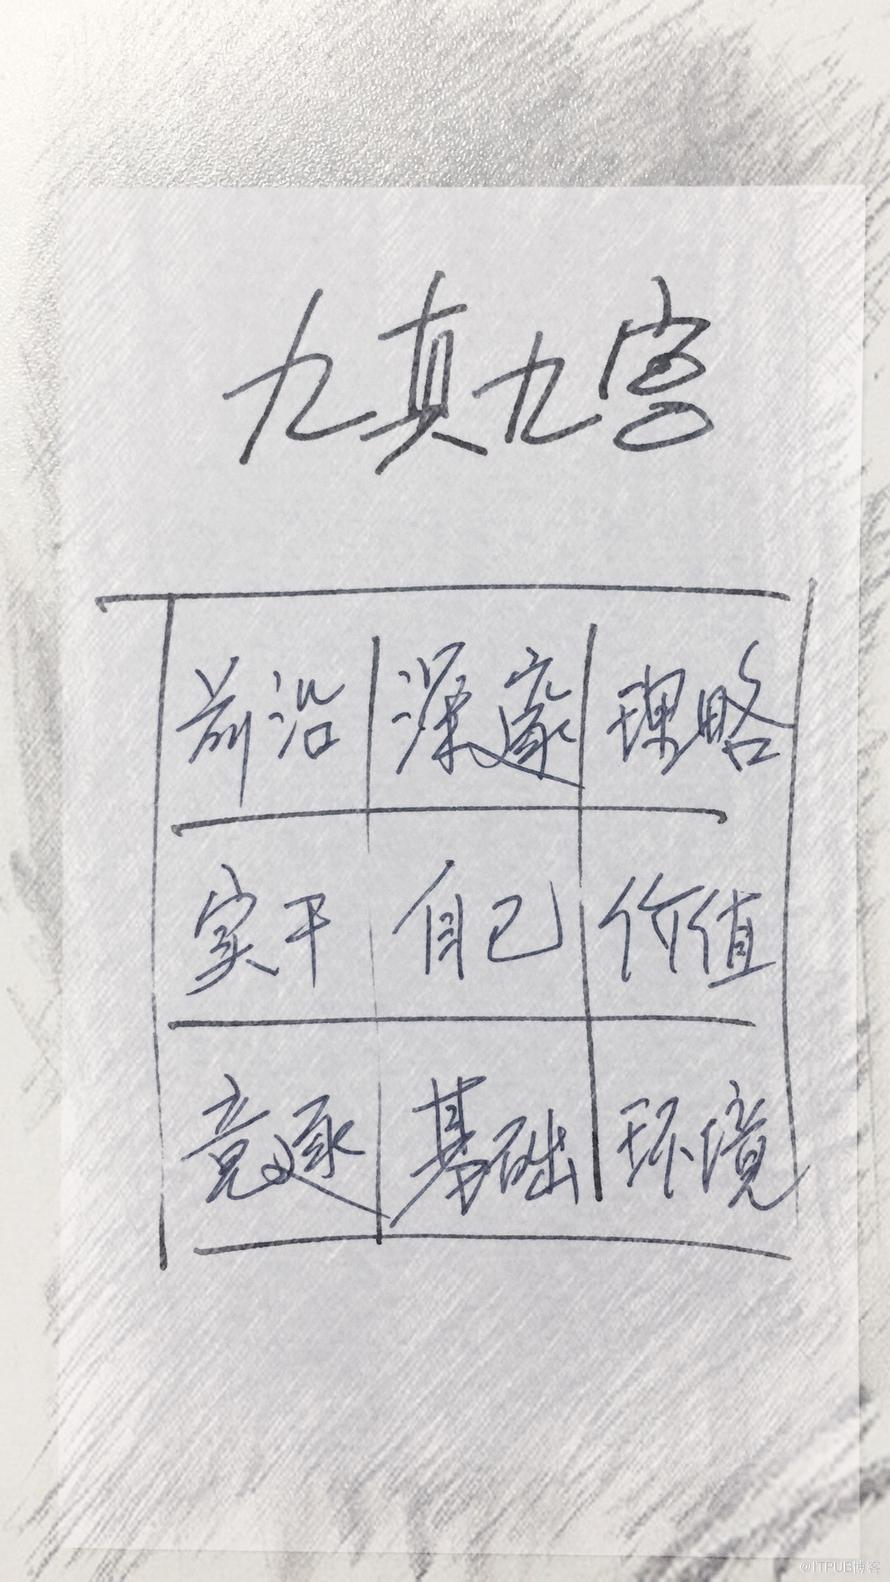 九真九宫
前沿 深邃 理略
实干 自己 价值
竞逐 基础 环境
@ITPUB博客